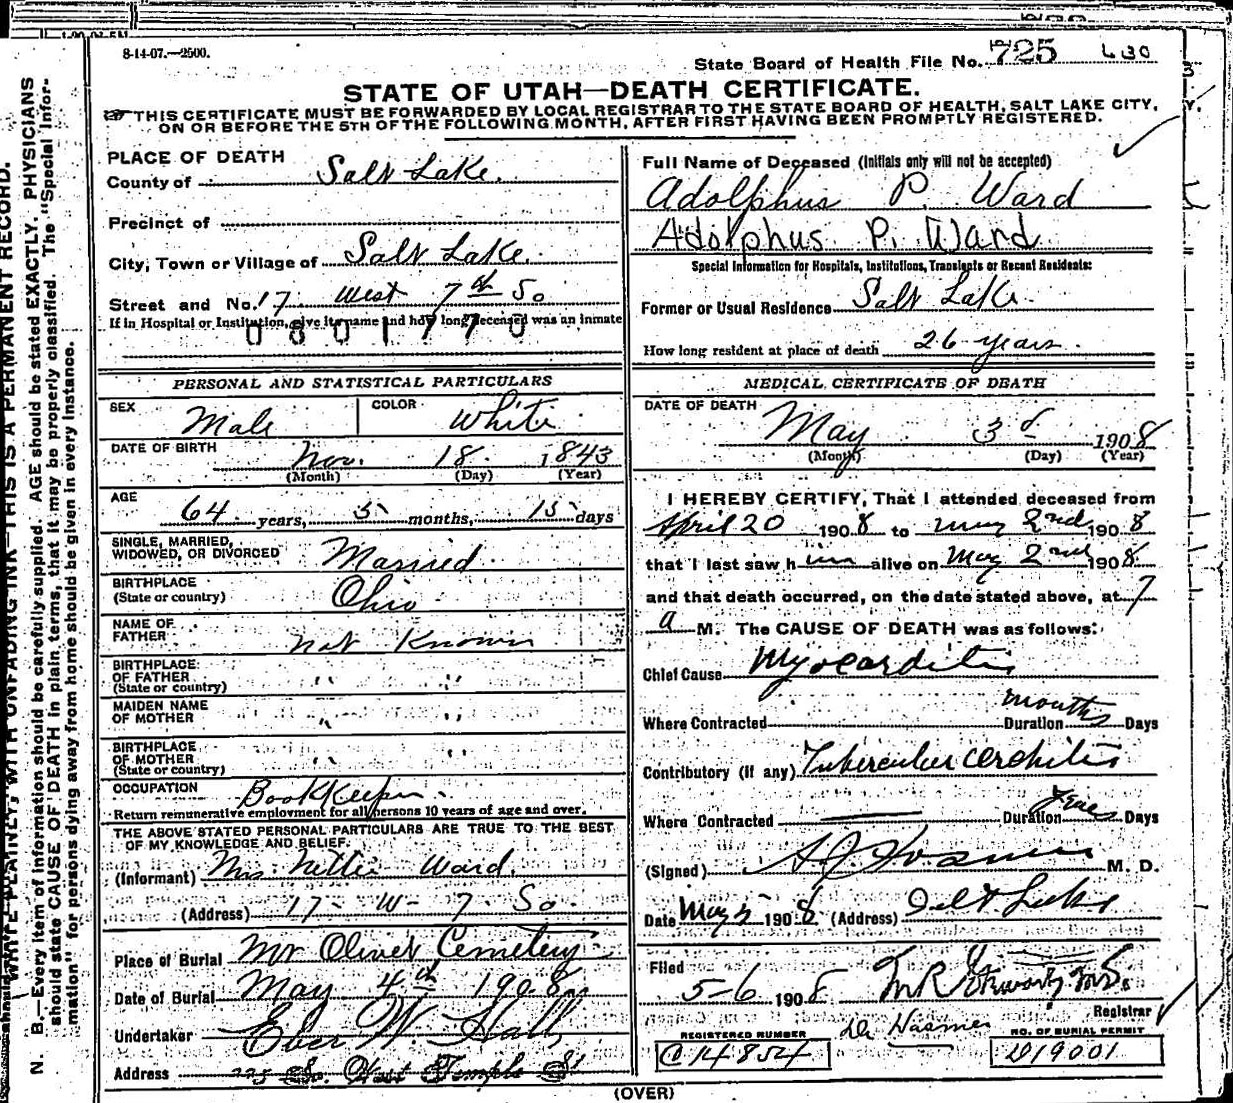 8-14-07.—2500.
State Board of Health File No. 725 430
STATE OF UTAH—DEATH CERTIFICATE.
THIS CERTIFICATE MUST BE FORWARDED BY LOCAL REGISTRAR TO THE STATE BOARD OF HEALTH, SALT LAKE CITY,
ON OR BEFORE THE 5TH OF THE FOLLOWING MONTH, AFTER FIRST HAVING BEEN PROMPTLY REGISTERED.
PLACE OF DEATH
County of Salt Lake.
Precinct of
City, Town or Village of Salt Lake.
Street and No. 17 West 7th So
If in Hospital or Institution, give its name and how long deceased was an inmate
0801770
PERSONAL AND STATISTICAL PARTICULARS
SEX Male
COLOR White
DATE OF BIRTH
Nov. 18 1843
(Month) (Day) (Year)
AGE
64 years, 5 months, 15 days
SINGLE, MARRIED,
WIDOWED, OR DIVORCED Married
BIRTHPLACE
(State or country) Ohio
NAME OF
FATHER not Known
BIRTHPLACE
OF FATHER
(State or country) " "
MAIDEN NAME
OF MOTHER " "
BIRTHPLACE
OF MOTHER
(State or country) " "
OCCUPATION Bookkeeper
Return remunerative employment for all persons 10 years of age and over.
THE ABOVE STATED PERSONAL PARTICULARS ARE TRUE TO THE BEST
OF MY KNOWLEDGE AND BELIEF.
(Informant) Mrs. Nettie Ward.
(Address) 17- W- 7. So.
Place of Burial Mt Olivet Cemetery
Date of Burial May 4th 1908
Undertaker Eber W. Hall
Address So. West Temple St
Full Name of Deceased (Initials only will not be accepted)
Adolphus P. Ward
Adolphus P. Ward
Special Information for Hospitals, Institutions, Transients or Recent Residents:
Former or Usual Residence Salt Lake
How long resident at place of death 26 years.
MEDICAL CERTIFICATE OF DEATH
DATE OF DEATH
May 3d 1908
(Month) (Day) (Year)
I HEREBY CERTIFY, That I attended deceased from
April 20 1908 to May 2nd 1908
that I last saw him alive on May 2nd 1908
and that death occurred, on the date stated above, at 7
a M. The CAUSE OF DEATH was as follows:
Chief Cause Myocarditis
Where Contracted Duration months Days
Contributory (if any) Tubercular orchitis
Where Contracted Duration Days
(Signed) M. D.
Date May 5 1908 (Address) Salt Lake
Filed
5-6 1908
Registrar
REGISTERED NUMBER
C14854
NO. OF BURIAL PERMIT
D19001
(OVER)
WRITE PLAINLY, WITH UNFADING INK—THIS IS A PERMANENT RECORD.
N. B.—Every item of information should be carefully supplied. AGE should be stated EXACTLY. PHYSICIANS
should state CAUSE OF DEATH in plain terms, that it may be properly classified. The "Special Infor-
mation" for persons dying away from home should be given in every instance.